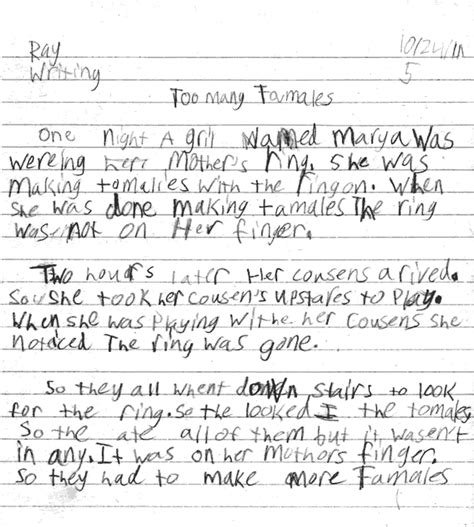 Ray 10/24/11
Writing 5
Too many Tamales
One night A gril Named Marya was
wereing herr Mother's ring. She was
Making tomalies with the ring on. When
She was done making tamales The ring
was not on Her finger.
Two hours later Her cousens arived.
So she took her cousen's upstares to play.
When she was playing withe her cousens she
notoced The ring was gone.
So they all whent down stairs to look
for the ring. So the looked I the tomales
So the ate all of them but it wasen't
in any. It was on her mothors finger.
So they had to make more Tamales